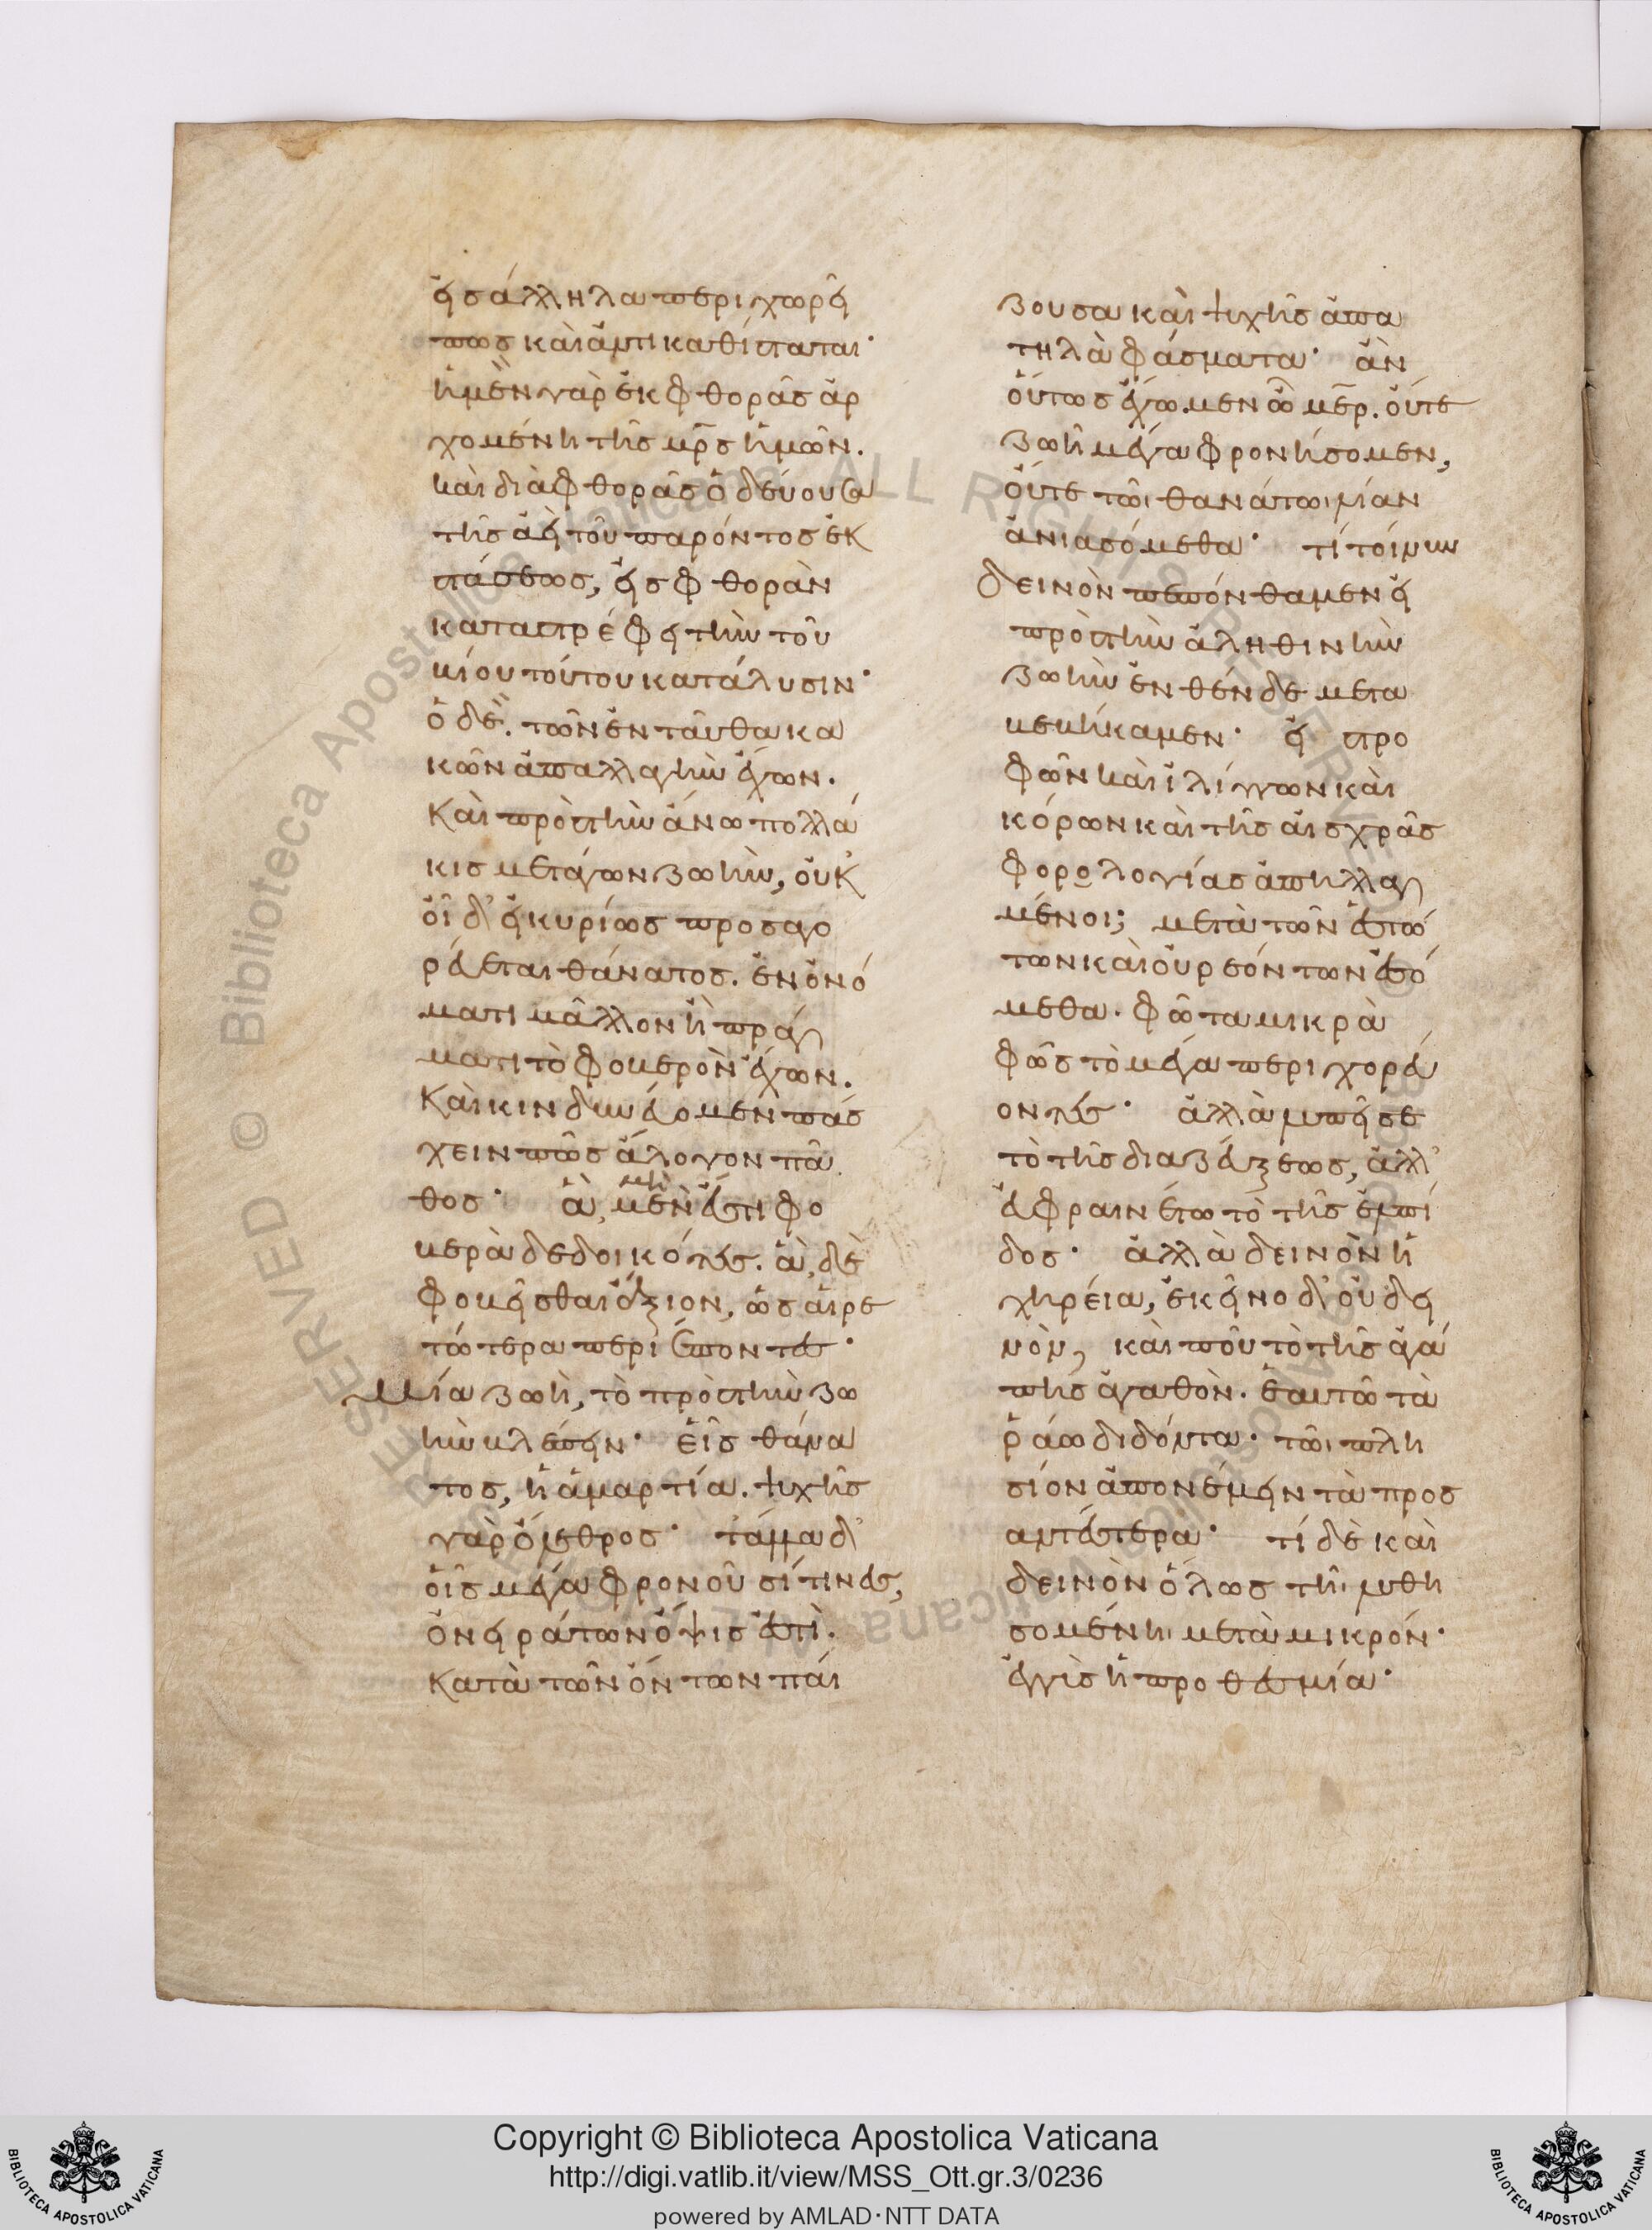 εἰς ἄλληλα περιχωρεῖ
πως καὶ ἀντικαθίσταται·
ἡ μὲν γὰρ ἐκ φθορᾶς ἀρ
χομένη τῆς μρ̅ς ἡμῶν.
καὶ διὰ φθορᾶς ὁδεύουσα
τῆς ἀεὶ τοῦ παρόντος ἐκ
στάσεως, εἰς φθορὰν
καταστρέφει τὴν τοῦ
βίου τούτου κατάλυσιν·
ὁ δὲ. τῶν ἐνταῦθα κα
κῶν ἀπαλλαγὴν ἔχων.
Καὶ πρὸς τὴν ἄνω πολλά
κις μετάγων ζωὴν, οὐκ
οἶδ' εἰ κυρίως προσαγο
ρεύεται θάνατος. ἐν ὀνό
ματι μᾶλλον ἢ πράγ
ματι τὸ φοβερὸν ἔχων.
Καὶ κινδυνεύομεν πάσ
χειν πῶς ἄλογον πά
θος· ἃ, μὲν μή ἐστι φο
βερὰ δεδοικότες. ἃ, δὲ
φοβεῖσθαι ἄξιον, ὡς αἱρε
τώτερα περιέποντες·
Μία ζωὴ, τὸ πρὸς τὴν ζω
ὴν βλέπειν· εἷς θάνα
τος, ἡ ἁμαρτία. ψυχῆς
γὰρ ὄλεθρος· τἄλλα δ'
οἷς μέγα φρονοῦσί τινες,
ὀνειράτων ὄψις ἐστὶ.
Κατὰ τῶν ὄντων παί
ζουσα καὶ ψυχῆς ἀπα
τηλὰ φάσματα· ἂν
οὕτως ἔχωμεν ὦ μερ. οὔτε
ζωῆ μέγα φρονήσομεν,
οὔτε τῶι θανάτωι λίαν
ἀνιασόμεθα· τί τοίνυν
δεινὸν πεπόνθαμεν εἰ
πρὸς τὴν ἀληθινὴν
ζωὴν ἐνθένδε μετα
βεβήκαμεν· εἰ στρο
φῶν καὶ ἰλίγγων καὶ
κόρων καὶ τῆς αἰσχρᾶς
φορολογίας ἀπηλλαγ
μένοι; μετὰ τῶν ἑστώ
των καὶ οὐ ρεόντων ἐσό
μεθα. φῶτα μικρὰ
φῶς τὸ μέγα περιχορεύ
οντες· ἀλλὰ λυπεῖ σε
τὸ τῆς διαζεύξεως, ἀλλ'
εὐφραινέτω τὸ τῆς ἐλπί
δος· ἀλλὰ δεινὸν ἡ
χηρεία, ἐκεῖνο δ' οὐ δει
νὸν, καὶ ποῦ τὸ τῆς ἀγά
πης ἀγαθὸν. ἑαυτῶ τὰ
ῥάω διδόντα. τῶι πλη
σίον ἀπονέμειν τὰ προσ
αντέστερα· τί δὲ καὶ
δεινὸν ὅλως τῆι λυθη
σομένηι μετὰ μικρόν·
ἐγγὺς ἡ προθεσμία·
Copyright © Biblioteca Apostolica Vaticana
http://digi.vatlib.it/view/MSS_Ott.gr.3/0236
powered by AMLAD·NTT DATA